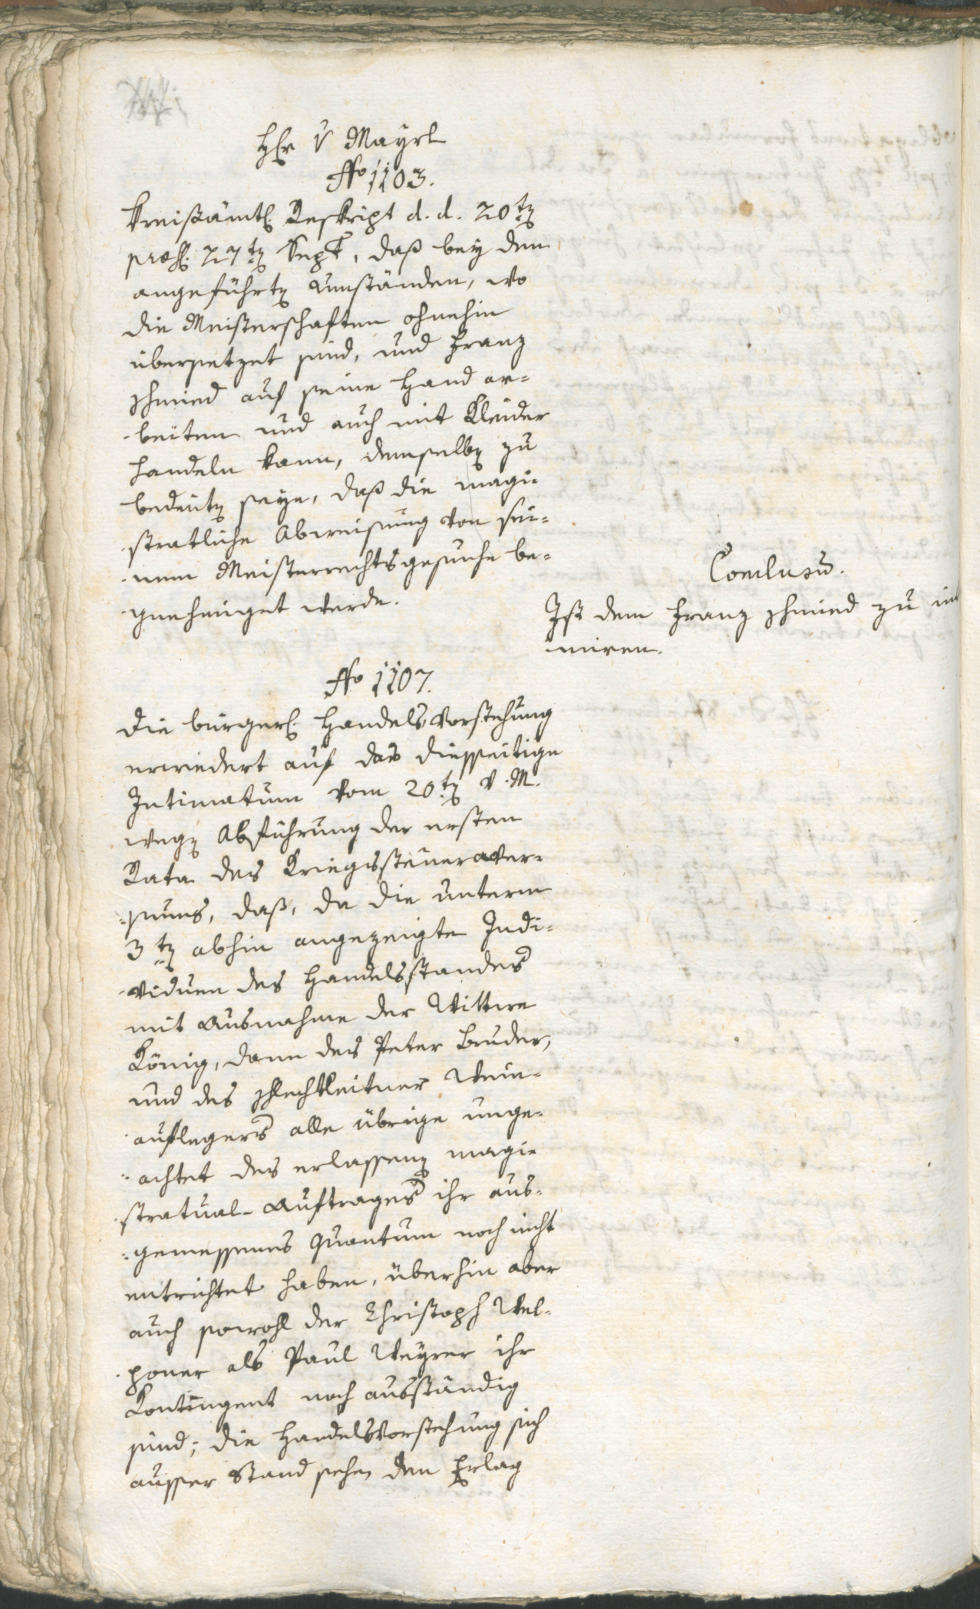 Hr. v Mayrl
No 1103.
Kreisämtl. Reskript d. d. 20ten
präs. 27ten Sept, daß bey den
angeführten Umständen, wo
die Meisterschaften ohnehin
übersetzet sind, und Franz
Schmied auf seine Hand ar=
beiten und auch mit Kleider
handeln kann, demselben zu
bedeuten seye, daß die magi=
stratliche Abweisung von sei=
nem Meisterrechtsgesuche be=
gnehmiget werde.
Conclusum.
Ist dem Franz Schmied zu in
miren.
No 1107.
Die bürgerl. Handelsvorstehung
erwiedert auf das diesseitige
Intimatum vom 20ten v. M.
wegen Abführung der ersten
Rata des Kriegssteueraver=
sums, daß, da die unterm
3ten abhin angezeigte Indi=
viduen des Handelsstandes
mit Ausnahme der Wittwe
König, dann des Peter Bruder,
und des Schlechtleitner Wein=
auflegers alle übrige unge=
achtet des erlassenen magi=
stratual-Auftrages ihr aus=
gemessenes Quantum noch nicht
entrichtet haben, überhin aber
auch sowohl der Christoph Wel=
poner als Paul Weyrer ihr
Kontingent noch ausständig
sind; die Handelsvorstehung sich
ausser Stand sehe, den Erlag